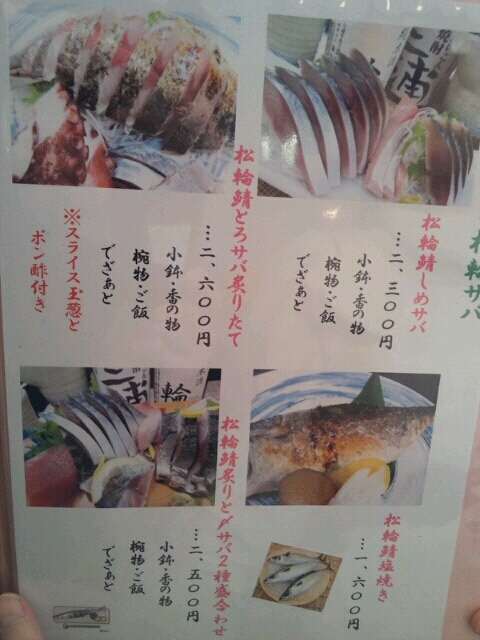 松輪サバ
松輪鯖しめサバ
…二、三〇〇円
小鉢・香の物
椀物・ご飯
でざあと
松輪鯖とろサバ炙りたて
…二、六〇〇円
小鉢・香の物
椀物・ご飯
でざあと
※スライス玉葱と
ポン酢付き
松輪鯖塩焼き
…一、六〇〇円
松輪鯖炙りと〆サバ2種盛合わせ
…二、五〇〇円
小鉢・香の物
椀物・ご飯
でざあと
輪